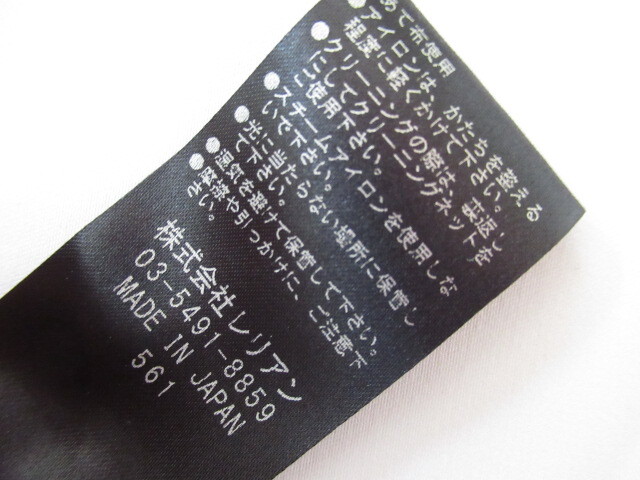 めて布使用
●アイロンは、かたちを整える
程度に軽くかけて下さい。
●クリーニングの際は、ネット
にしてクリーニング
ご使用下さい。
●スチームアイロンを使用しな
いで下さい。
●光に当たらない場所に保管し
て下さい。
●湿気を避けて保管して下さい。
●摩擦や引っかけに、ご注意下
さい。
株式会社レリアン
03-5491-8859
MADE IN JAPAN
561